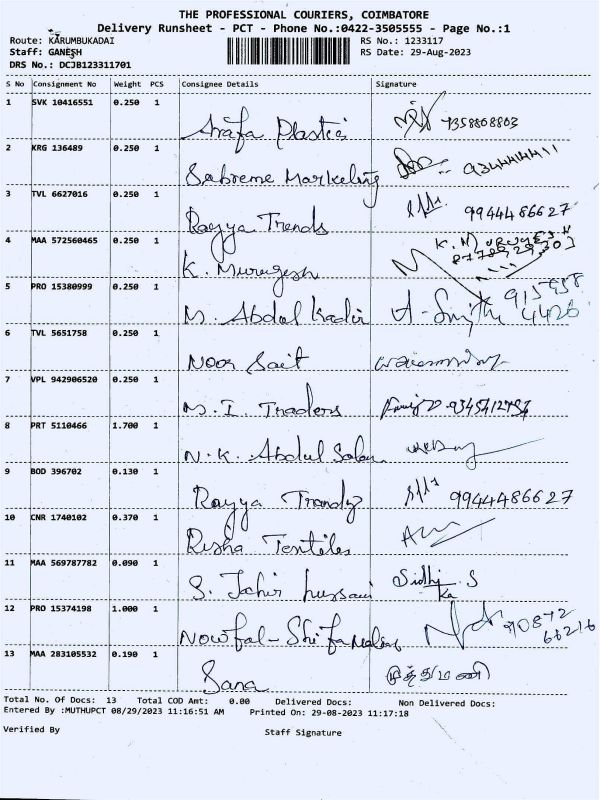 THE PROFESSIONAL COURIERS, COIMBATORE
Delivery Runsheet - PCT - Phone No.:0422-3505555 - Page No.:1
Route: KARUMBUKADAI RS No.: 1233117
Staff: GANESH RS Date: 29-Aug-2023
DRS No.: DCJB123311701
S No Consignment No Weight PCS Consignee Details Signature
1 SVK 10416551 0.250 1 Arafa Plastic 7358808803
2 KRG 136489 0.250 1 Sabreme Marketing
3 TVL 6627016 0.250 1 Rayya Trends 9944486627
4 MAA 572560465 0.250 1 K. Murugesh
5 PRO 15380999 0.250 1 M. Abdul Kadir
6 TVL 5651758 0.250 1 Noor Sait
7 VPL 942906520 0.250 1 M. I. Traders
8 PRT 5110466 1.700 1 N. K. Abdul Salam
9 BOD 396702 0.130 1 Rayya Trendz 9944486627
10 CNR 1740102 0.370 1 Risha Textiles
11 MAA 569787782 0.090 1 S. Jahir hussain
12 PRO 15374198 1.000 1 Nowfal - Shifa
13 MAA 283105532 0.190 1 Sana முத்துமணி
Total No. Of Docs: 13 Total COD Amt: 0.00 Delivered Docs: Non Delivered Docs:
Entered By :MUTHUPCT 08/29/2023 11:16:51 AM Printed On: 29-08-2023 11:17:18
Verified By Staff Signature